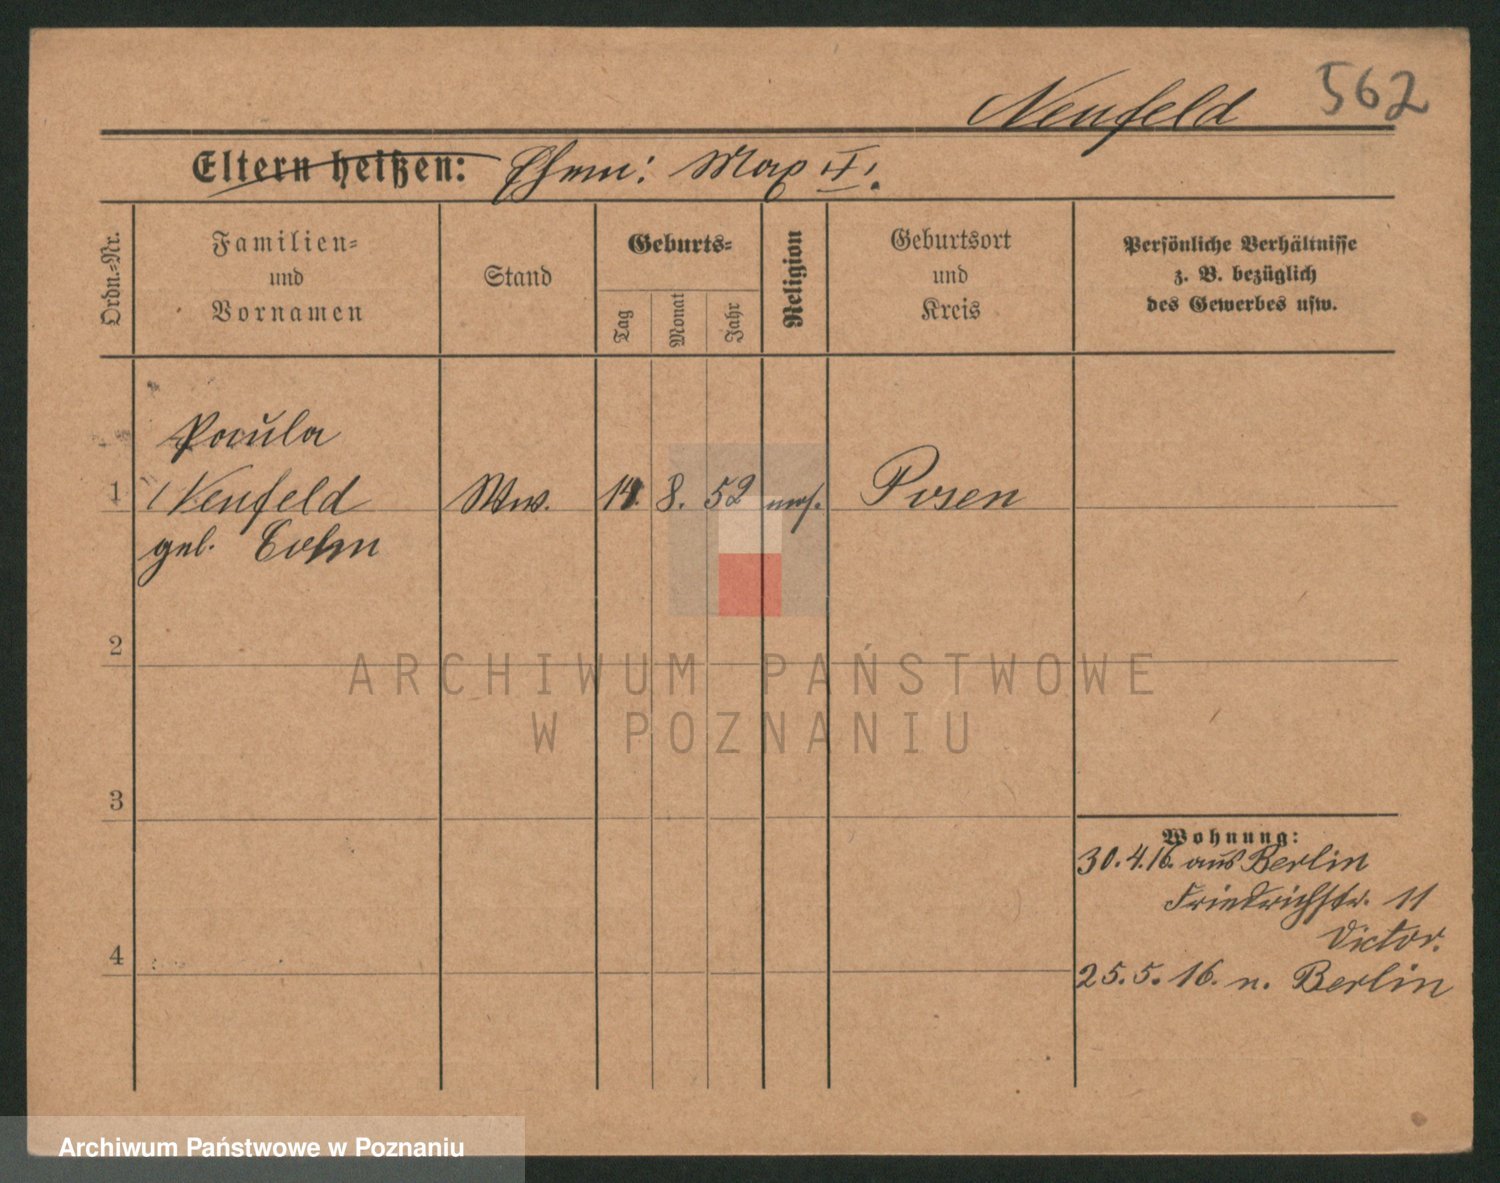 562
Neufeld
Eltern heißen: Ehem: Max †.
Ordn.-Nr.
Familien-
und
Vornamen
Stand
Geburts-
Tag
Monat
Jahr
Religion
Geburtsort
und
Kreis
Persönliche Verhältnisse
z. B. bezüglich
des Gewerbes usw.
Paula
1 Neufeld Ww. 14. 8. 52 mos. Posen
geb. Cohn
2
3
4
Wohnung:
30.4.16. aus Berlin
Friedrichstr. 11
Victor.
25.5.16. n. Berlin
ARCHIWUM PAŃSTWOWE
W POZNANIU
Archiwum Państwowe w Poznaniu